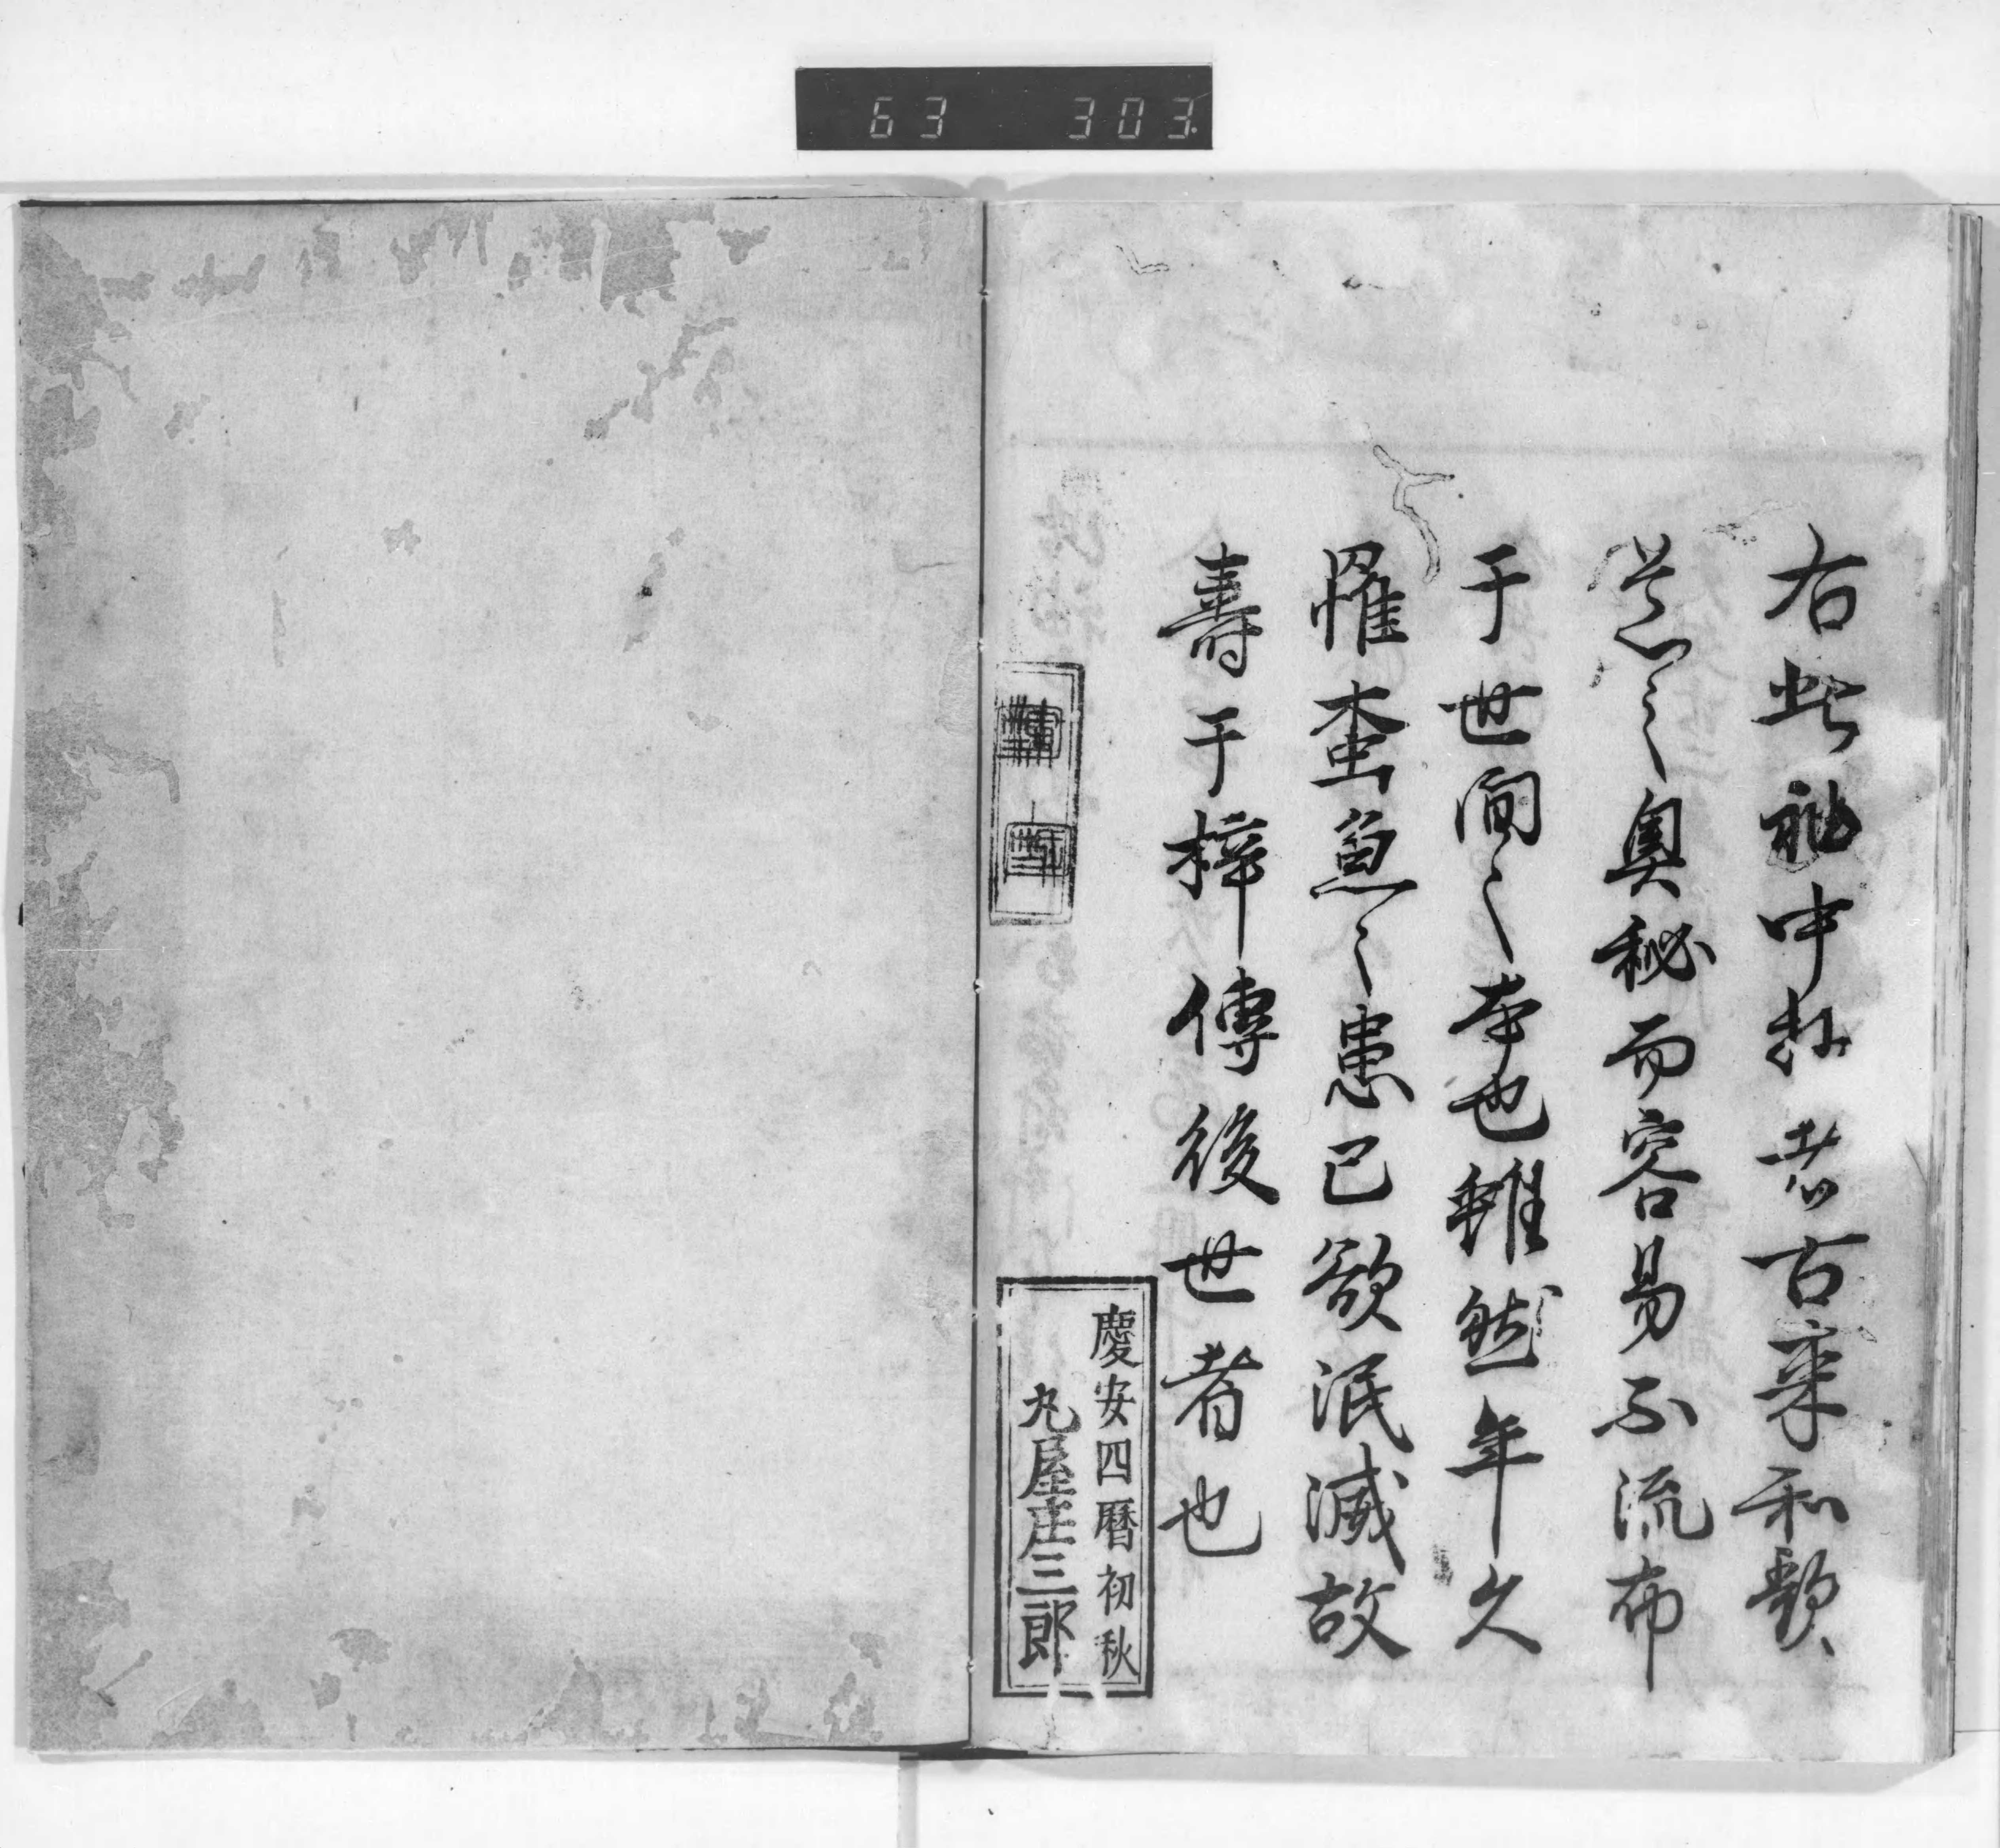 63 303
右此袖中抄者古来和歌
之奥秘而容易不流布
于世間之本也雖然年久
罹蠹魚之患已欲泯滅故
壽于梓傳後世者也
慶安四暦初秋
丸屋庄三郎